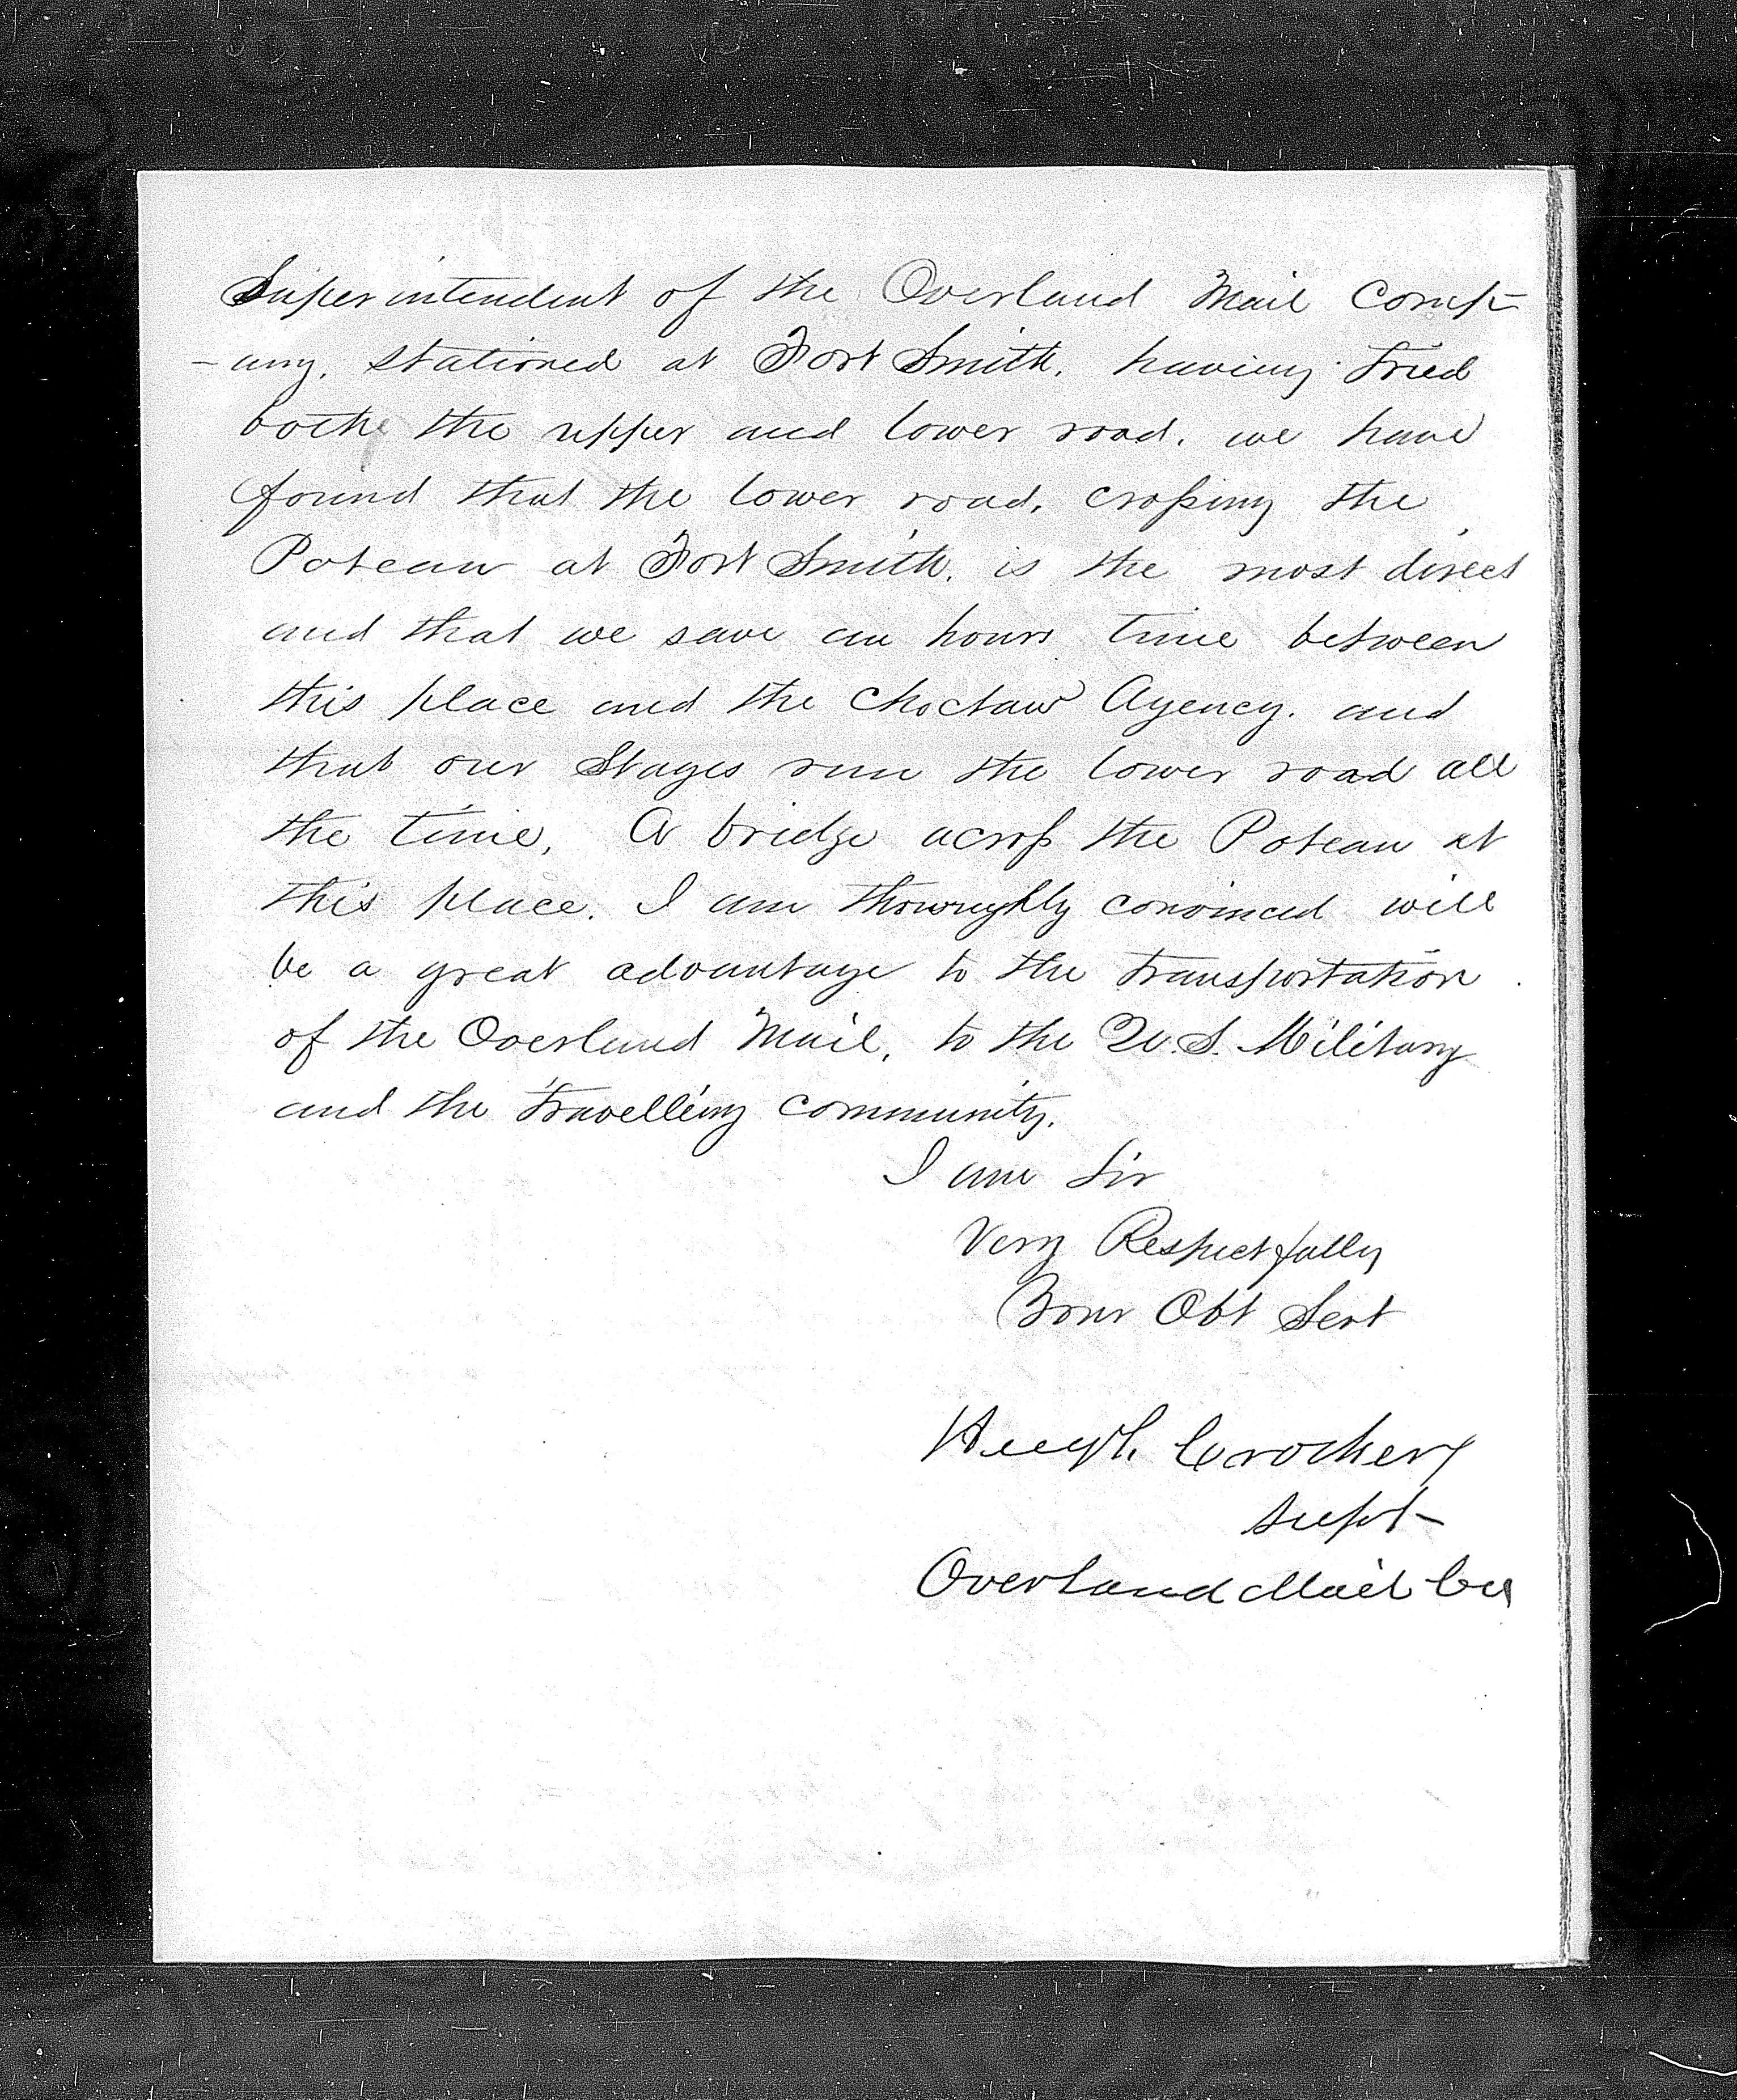 Superintendent of the Overland Mail Comp-
-any, stationed at Fort Smith, having tried
both the upper and lower road, we have
found that the lower road, crossing the
Poteau at Fort Smith, is the most direct
and that we save an hours time between
this place and the Choctaw Agency, and
that our Stages run the lower road all
the time, A bridge across the Poteau at
this place, I am thouroughly convinced will
be a great advantage to the transportation
of the Overland Mail, to the U.S. Military
and the travelling community.
I am Sir
Very Respectfully
Your Obt Sevt
Hugh Crocker
Supt-
Overland Mail Co